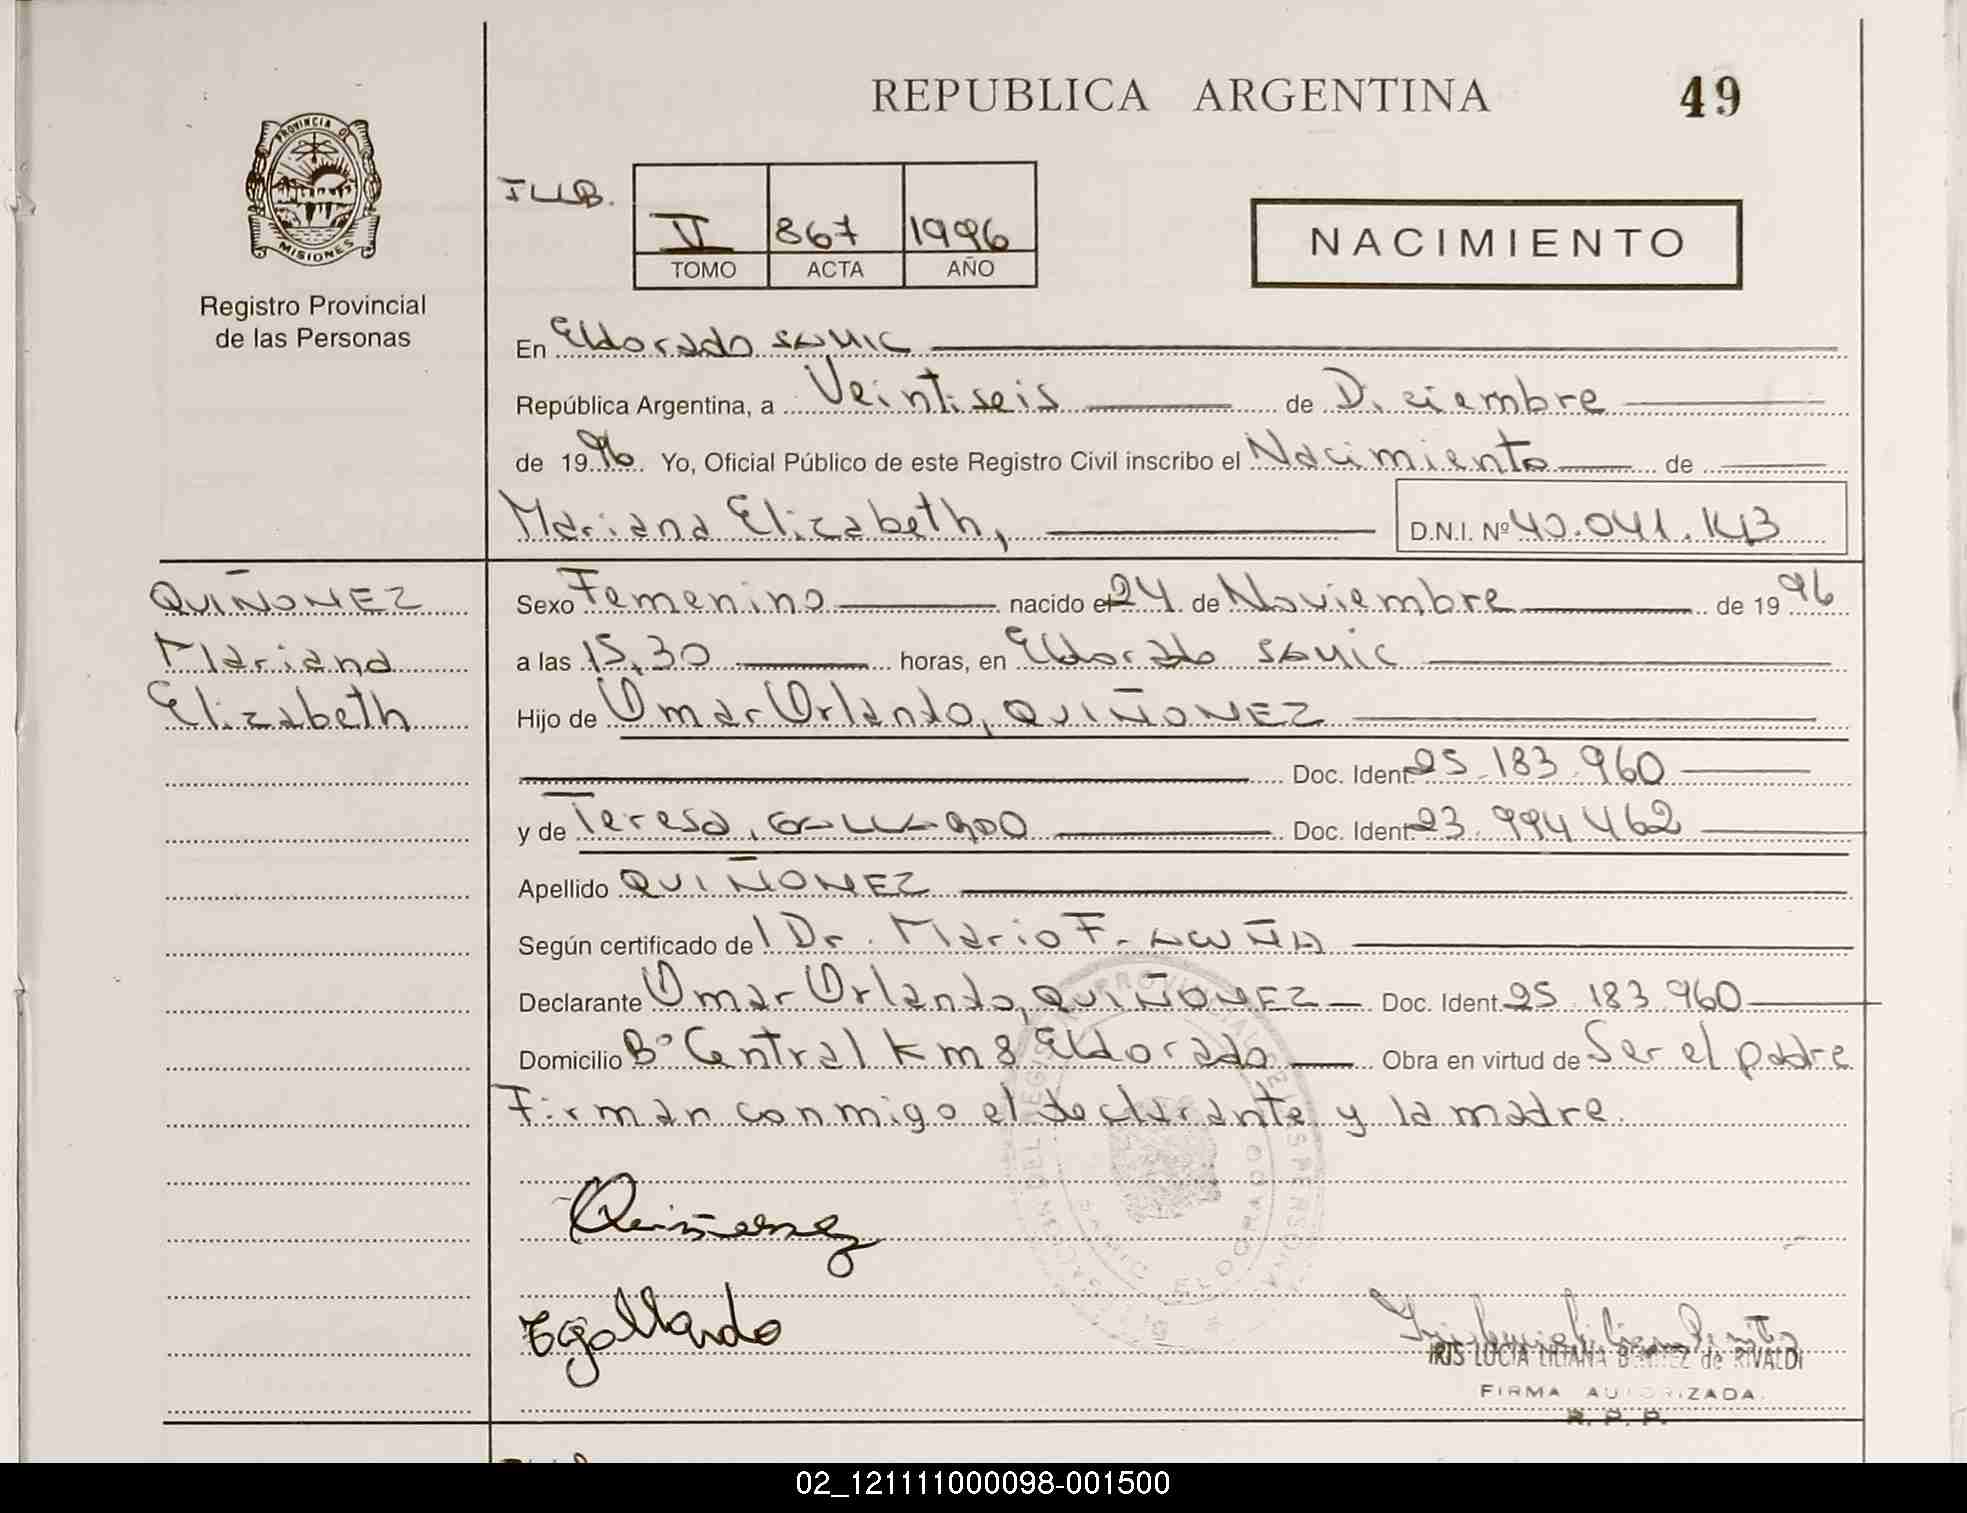 REPUBLICA ARGENTINA
49
PROVINCIA DE
MISIONES
Registro Provincial
de las Personas
IUB.
II 867 1996
TOMO ACTA AÑO
NACIMIENTO
En Eldorado SAMIC
República Argentina, a Veintiseis de Diciembre
de 1996 Yo, Oficial Público de este Registro Civil inscribo el Nacimiento de
Mariana Elizabeth,
D.N.I. Nº 40.041.143
QUIÑONEZ
Mariana
Elizabeth
Sexo Femenino nacido el 24 de Noviembre de 1996
a las 15,30 horas, en Eldorado SAMIC
Hijo de Omar Orlando, QUIÑONEZ
Doc. Ident. 25.183.960
y de Teresa, GALLARDO Doc. Ident. 23.994.462
Apellido QUIÑONEZ
Según certificado de l Dr. Mario F. ACUÑA
Declarante Omar Orlando, QUIÑONEZ Doc. Ident. 25.183.960
Domicilio Bº Central Km 8 Eldorado Obra en virtud de Ser el padre
Firman conmigo el declarante y la madre.
Quiñonez
TGallardo
IRIS LUCIA LILIANA de RIVALDI
FIRMA AUTORIZADA
R. P. P.
02_121111000098-001500